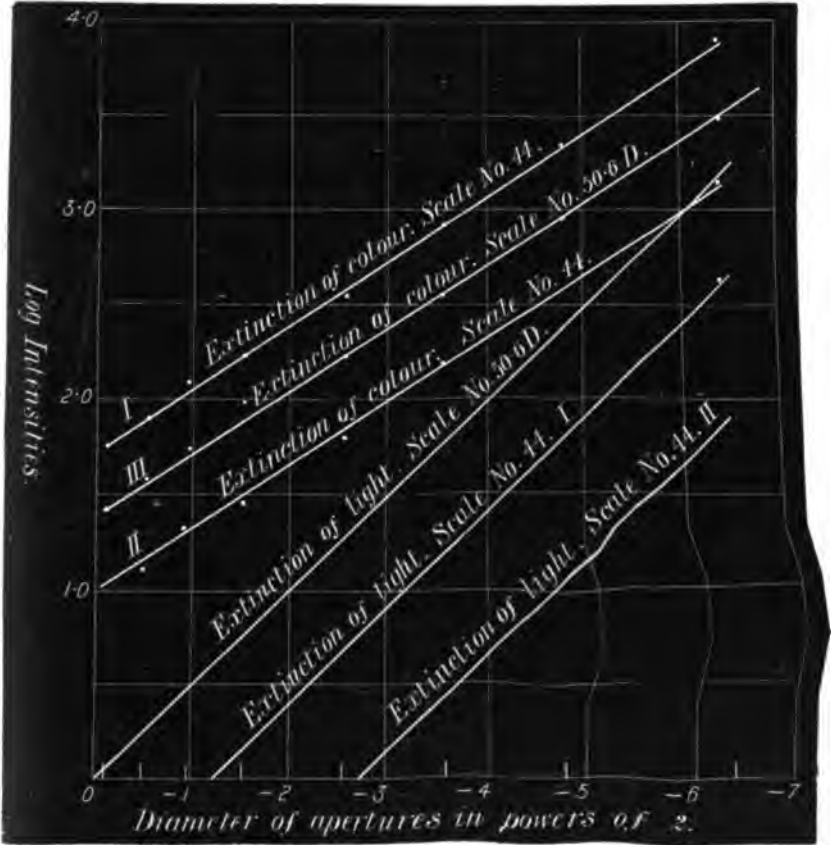 4·0
3·0
2·0
1·0
Log Intensities.
I
Extinction of colour; Scale No. 44.
III
Extinction of colour; Scale No. 50·6 D.
II
Extinction of colour; Scale No. 44.
Extinction of light. Scale No. 50·6 D.
Extinction of light. Scale No. 44. I
Extinction of light. Scale No. 44. II
0 -1 -2 -3 -4 -5 -6 -7
Diameter of apertures in powers of 2.